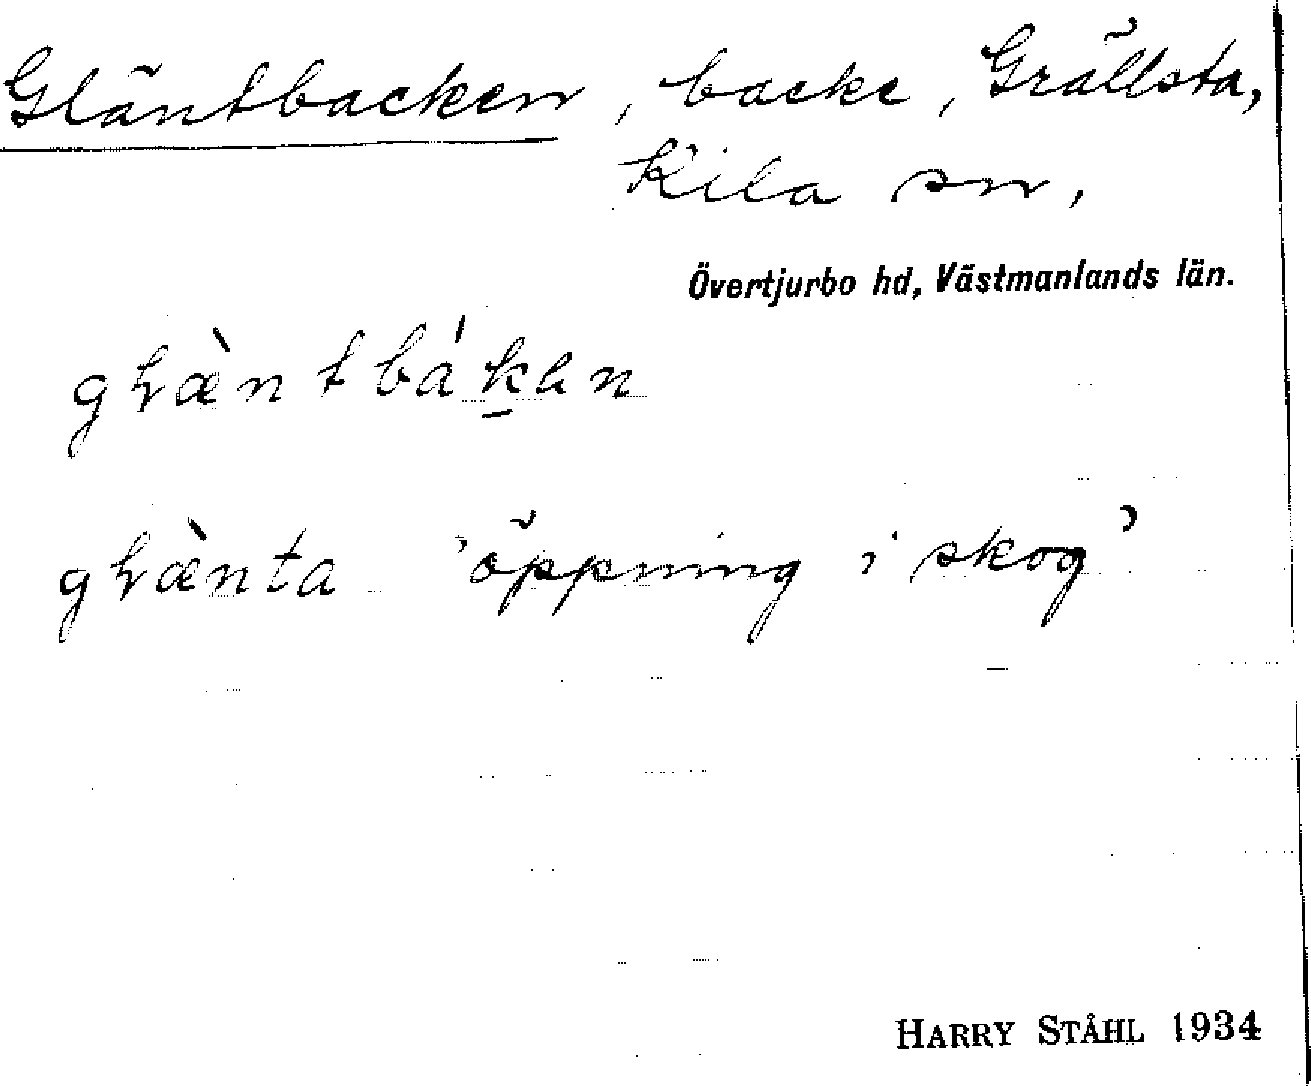 Gläntbacken, backe, Grällsta,
Kila sn,
Övertjurbo hd, Västmanlands län.
gɽæ̀ntbákan
gɽæ̀nta 'öppning i skog'
HARRY STÅHL 1934